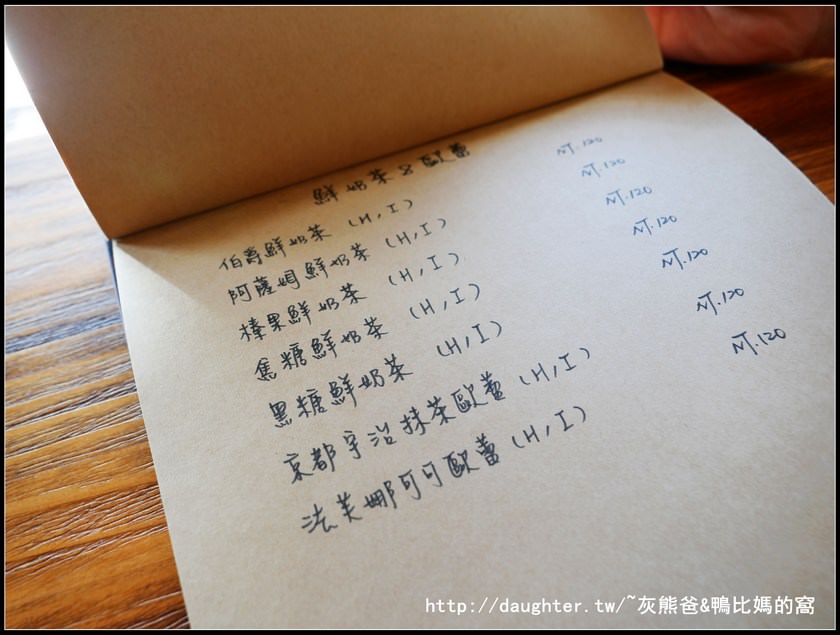 鮮奶茶&歐蕾
伯爵鮮奶茶 (H,I) NT.120
阿薩姆鮮奶茶 (H,I) NT.120
榛果鮮奶茶 (H,I) NT.120
焦糖鮮奶茶 (H,I) NT.120
黑糖鮮奶茶 (H,I) NT.120
京都宇治抹茶歐蕾 (H,I) NT.120
法芙娜可可歐蕾 (H,I) NT.120
http://daughter.tw/~灰熊爸&鴨比媽的窩